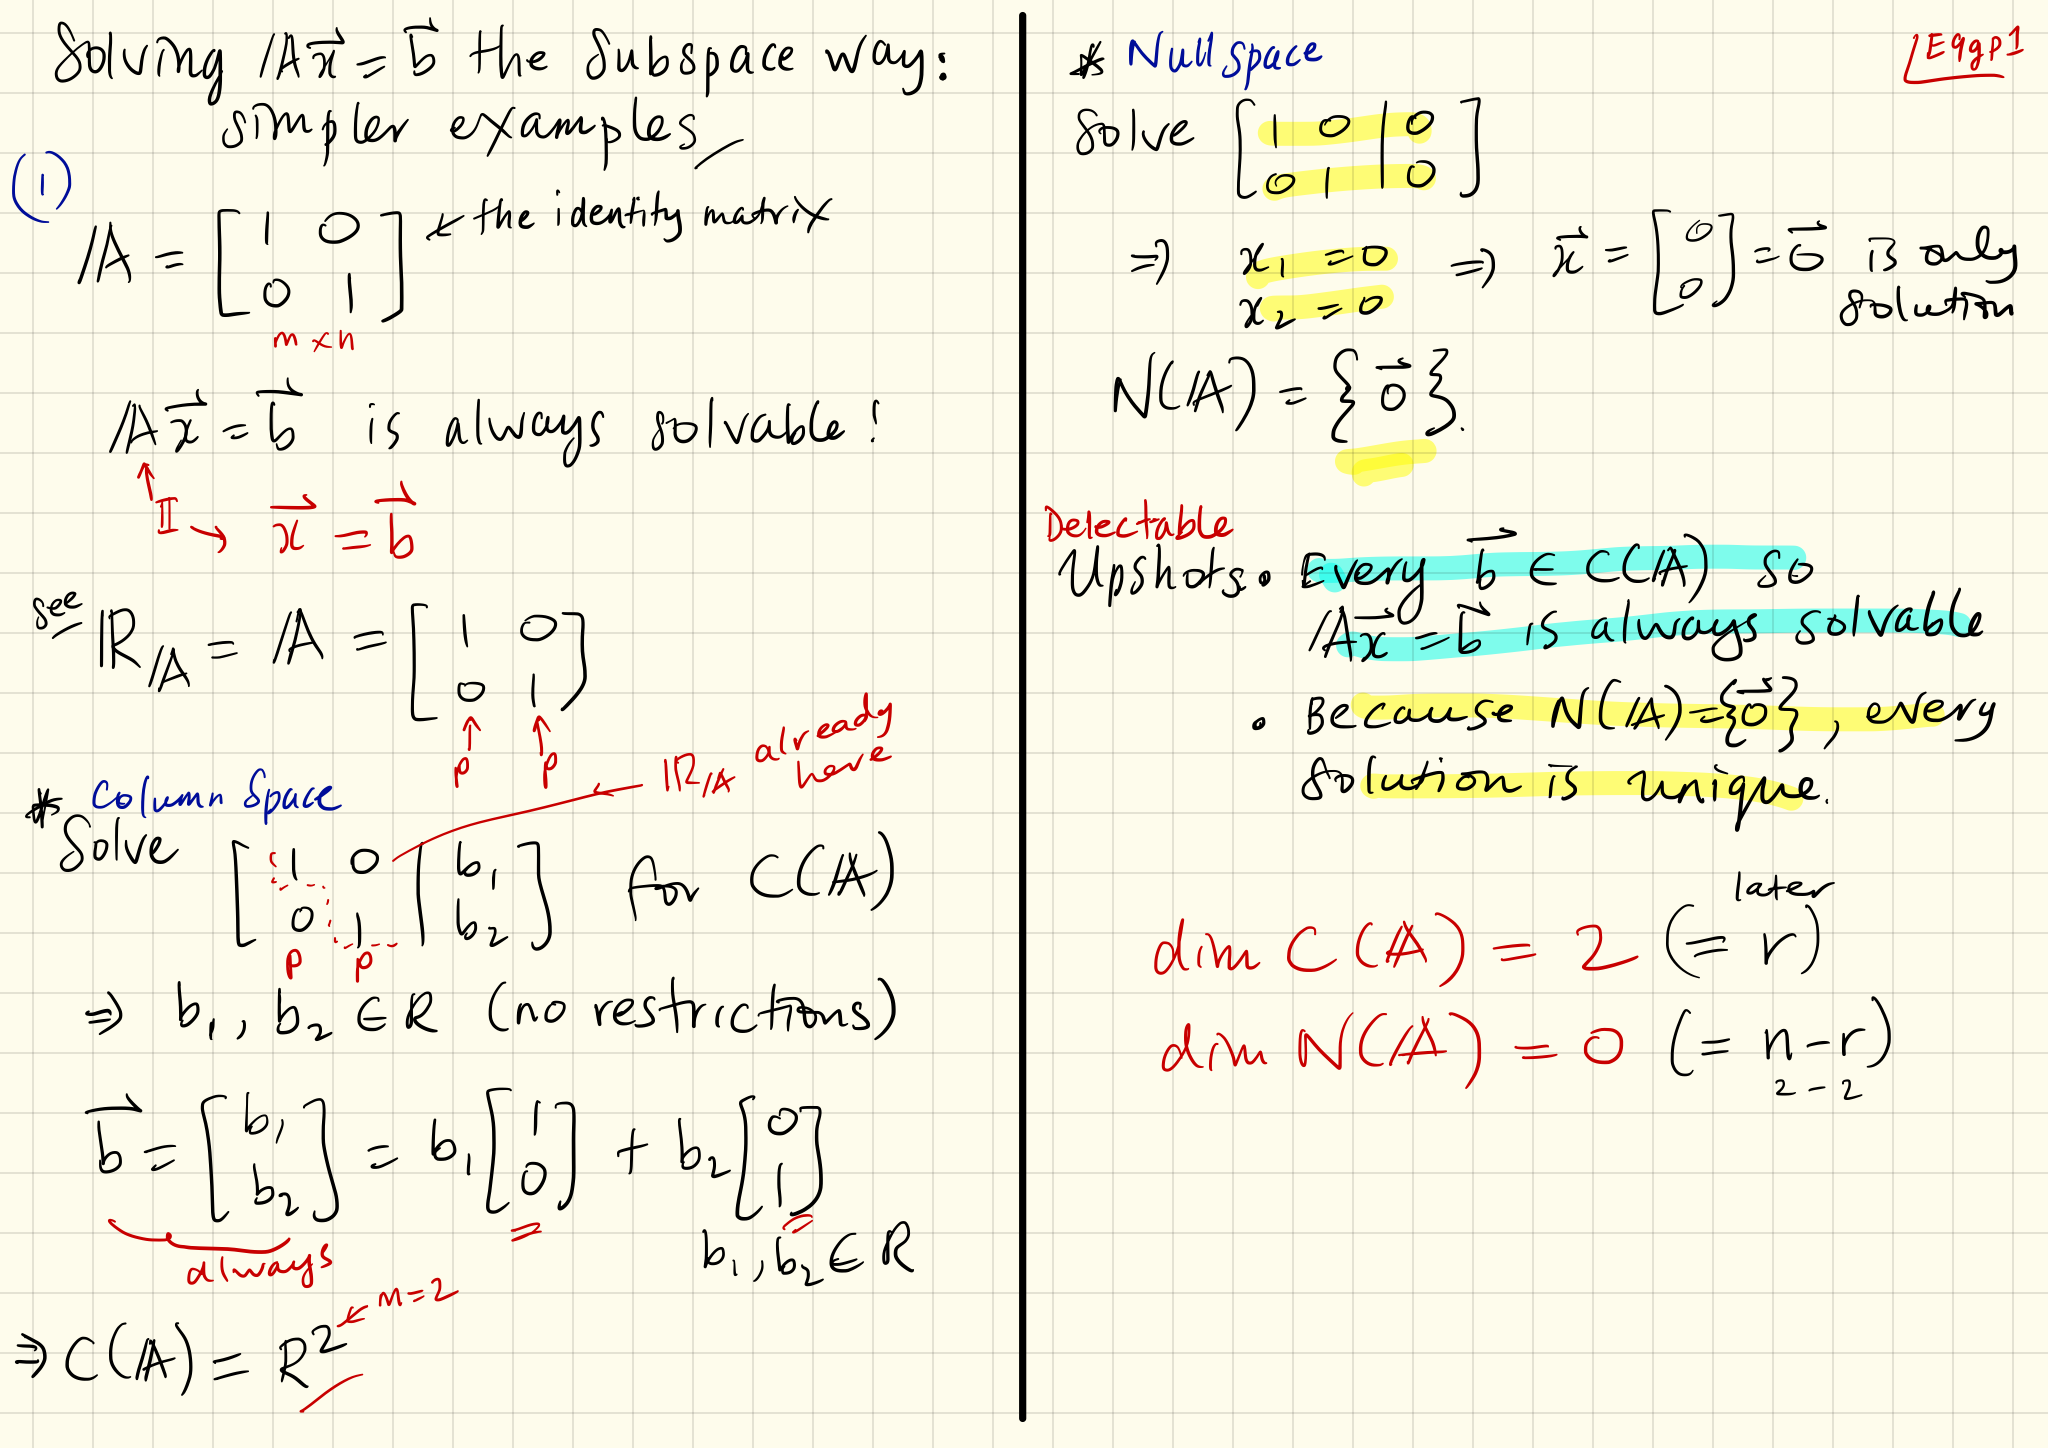 Solving 𝔸x⃗ = b⃗ the subspace way:
simpler examples
(1)
𝔸 = [1 0; 0 1] ← the identity matrix
m × n
𝔸x⃗ = b⃗ is always solvable!
↑
𝕀 → x⃗ = b⃗
see ℝ_𝔸 = 𝔸 = [1 0; 0 1]
↑ ↑
p p
← ℝ_𝔸 already here
* Column Space
Solve [1 0 | b₁; 0 1 | b₂] for C(𝔸)
p p
⇒ b₁, b₂ ∈ R (no restrictions)
b⃗ = [b₁; b₂] = b₁ [1; 0] + b₂ [0; 1]
always
b₁, b₂ ∈ R
⇒ C(𝔸) = R² ← m=2
* Null Space
Eqgp1
Solve [1 0 | 0; 0 1 | 0]
⇒ x₁ = 0
x₂ = 0
⇒ x⃗ = [0; 0] = 0⃗ is only
solution
N(𝔸) = {0⃗}.
Delectable
Upshots • Every b⃗ ∈ C(𝔸) so
𝔸x⃗ = b⃗ is always solvable
• Because N(𝔸)={0⃗}, every
solution is unique.
later
dim C(𝔸) = 2 (= r)
dim N(𝔸) = 0 (= n-r)
2 - 2